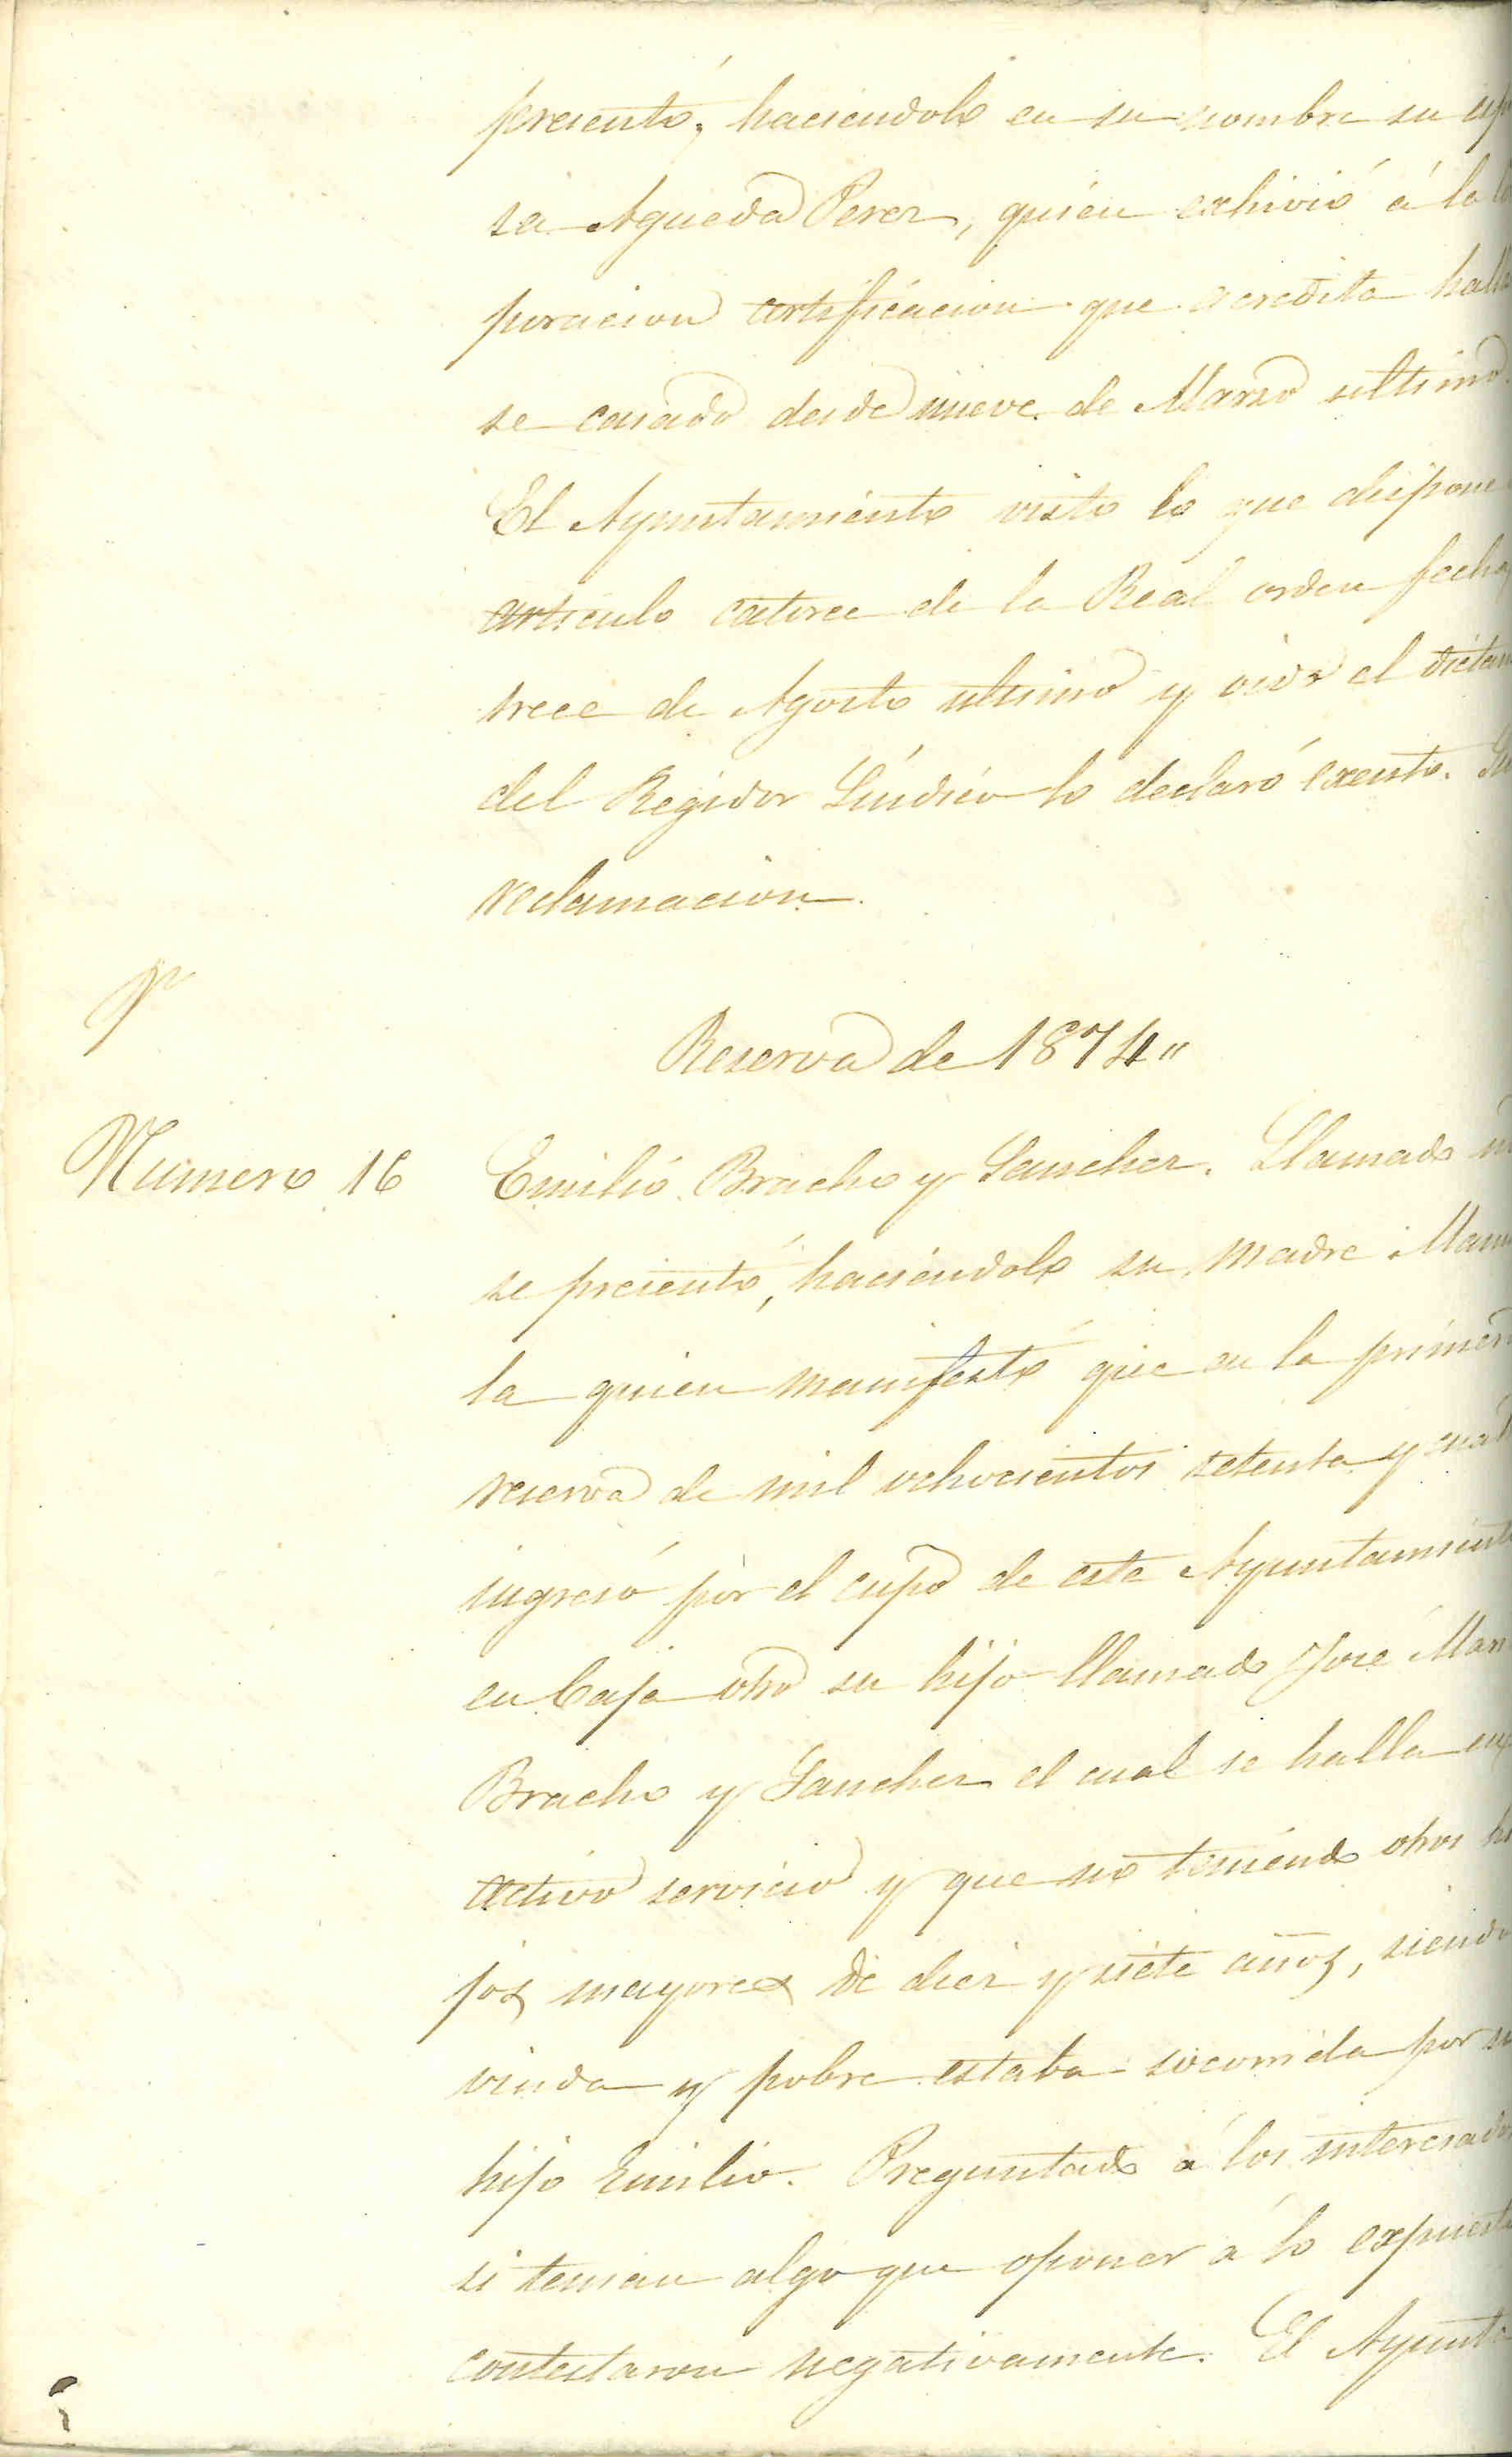 presentó, haciendolo en su nombre su espo
sa Agueda Perez, quien exhivió á la Co
poracion certificacion que acredita halla
se casado desde nueve de Marzo ultimo
El Ayuntamiento visto lo que dispone
articulo catorce de la Real orden fecha
trece de Agosto ultimo y oido el dictam
del Regidor Síndico lo declaró exento. Si
reclamacion.
Reserva de 1874"
Número 16 Emilio Bracho y Sanchez. Llamado n
se presentó, haciéndolo su madre Manu
la quien manifestó que en la primera
reserva de mil ochocientos setenta y cuat
ingresó por el cupo de este Ayuntamiento
en Caja otro su hijo llamado José Man
Bracho y Sanchez el cual se halla en
activo servicio y que no teniendo otros hi
jos mayores de diez y siete años, siendo
viuda y pobre estaba socorrida por su
hijo Emilio. Preguntado á los interesado
si tenian algo que oponer á lo expuesto
contestaron negativamente. El Ayunta